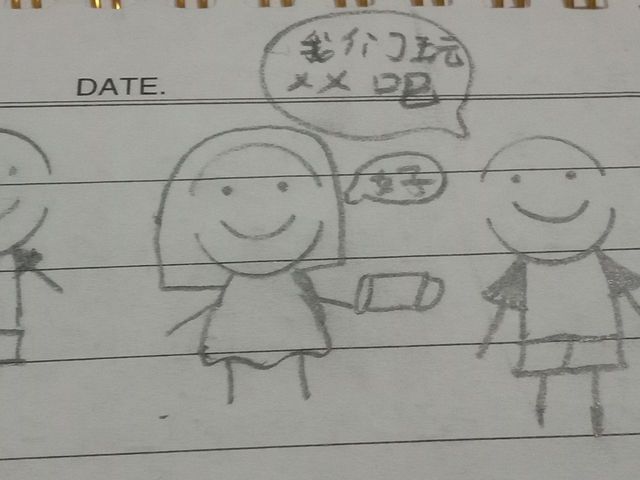 DATE.
我们玩
××吧
好